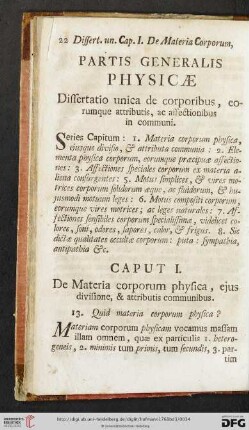 22 Dissert. un. Cap. I. De Materia Corporum,
PARTIS GENERALIS
PHYSICÆ
Dissertatio unica de corporibus, eo-
rumque attributis, ac affectionibus
in communi.
Series Capitum: 1. Materia corporum physica,
ejusque divisio, & attributa communia: 2. Ele-
menta physica corporum, eorumque præcipuæ affectio-
nes: 3. Affectiones speciales corporum ex materia a-
liunde consurgentes: 5. Motus simplices, & vires mo-
trices corporum solidorum æque, ac fluidorum, & hu-
jusmodi motuum leges: 6. Motus compositi corporum
eorumque vires motrices; ac leges naturales: 7. Af-
fectiones sensibiles corporum specialissimæ, videlicet co-
lores, soni, odores, sapores, calor, & frigus. 8. Sic
dictæ qualitates occultæ corporum: puta: sympathia,
antipathia &c.
CAPUT I.
De Materia corporum physica, ejus
divisione, & attributis communibus.
13. Quid materia corporum physica?
Materiam corporum physicam vocamus massam
illam omnem, quæ ex particulis 1. hetero-
geneis, 2. minimis tum primis, tum secundis, 3. par-
tim